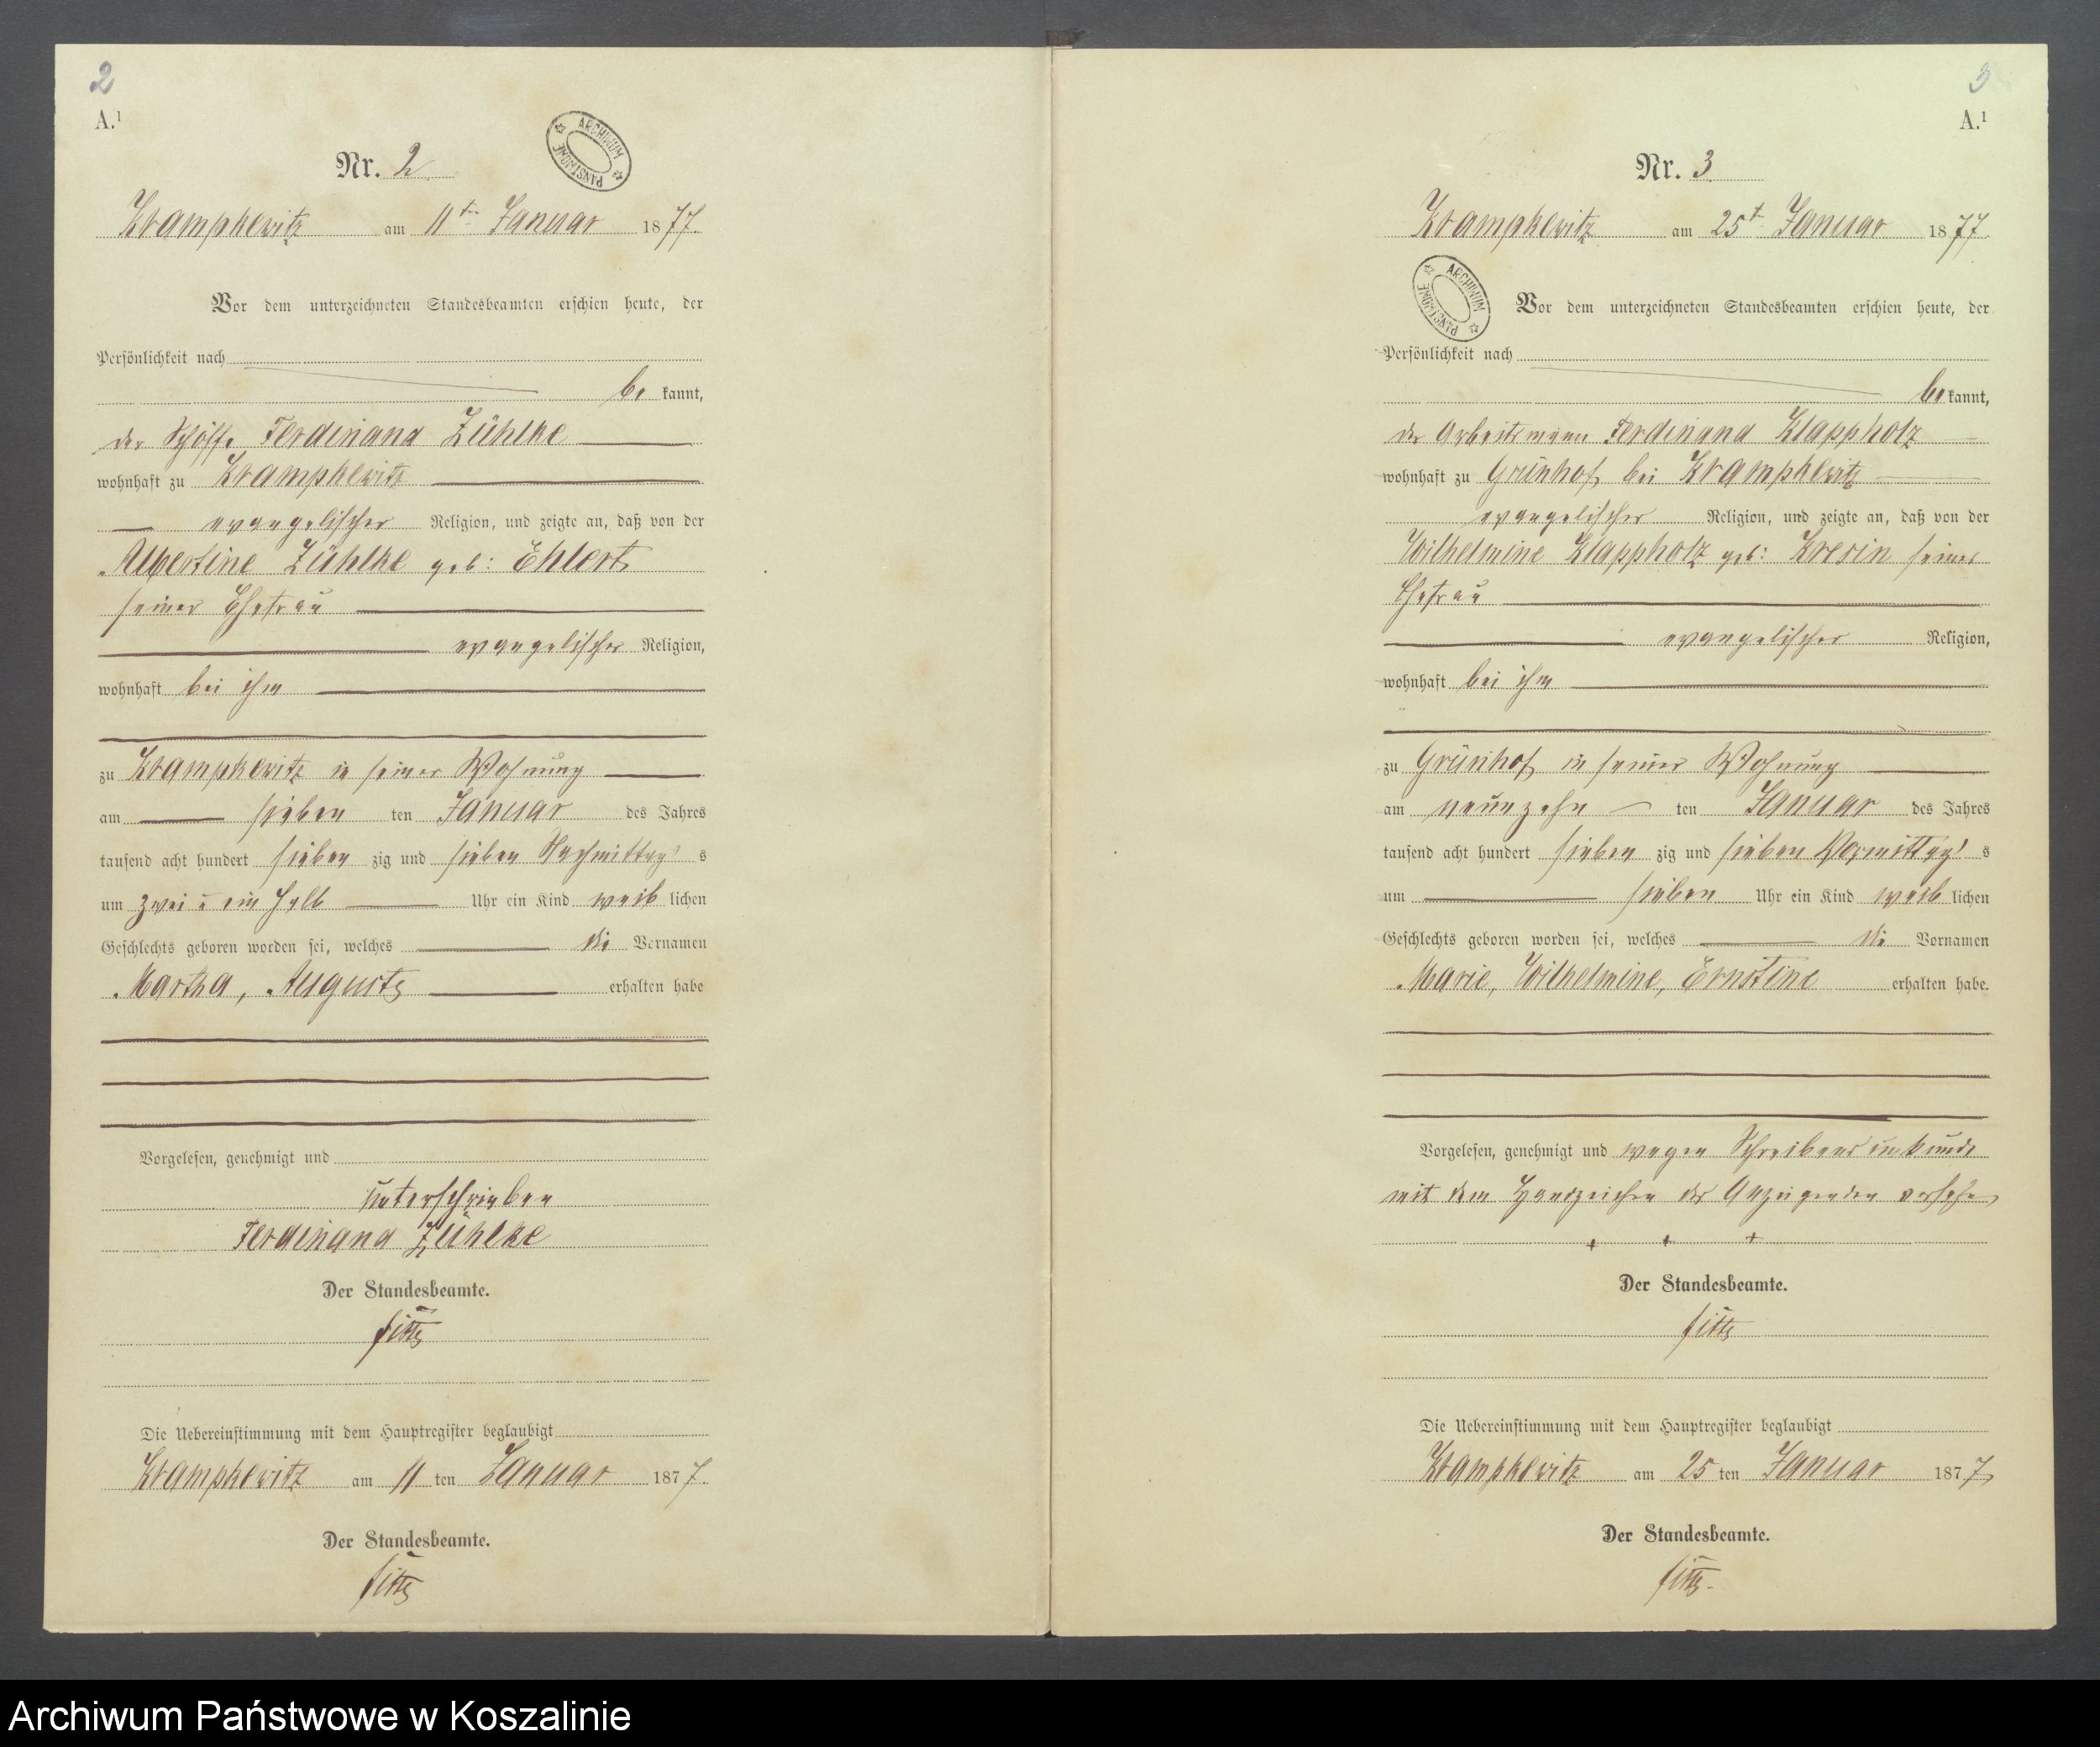 2
A.¹
ARCHIWUM PAŃSTWOWE
Nr. 2
Krampkewitz am 11t. Januar 1877.
Vor dem unterzeichneten Standesbeamten erschien heute, der
Persönlichkeit nach
be kannt,
der Schöffe Ferdinand Zühlke
wohnhaft zu Krampkewitz
evangelischer Religion, und zeigte an, daß von der
Albertine Zühlke geb: Ehlert
seiner Ehefrau
evangelischer Religion,
wohnhaft bei ihm
zu Krampkewitz in seiner Wohnung
am sieben ten Januar des Jahres
tausend acht hundert sieben zig und sieben Nachmittag s
um zwei u ein halb Uhr ein Kind weib lichen
Geschlechts geboren worden sei, welches die Vornamen
Martha, Auguste erhalten habe
Vorgelesen, genehmigt und
unterschrieben
Ferdinand Zühlke
Der Standesbeamte.
Die Uebereinstimmung mit dem Hauptregister beglaubigt
Krampkewitz am 11 ten Januar 1877.
Der Standesbeamte.
3
A.¹
Nr. 3
Krampkewitz am 25t Januar 1877.
ARCHIWUM PAŃSTWOWE
Vor dem unterzeichneten Standesbeamten erschien heute, der
Persönlichkeit nach
be kannt,
der Arbeitsmann Ferdinand Klappholz
wohnhaft zu Grünhof bei Krampkewitz
evangelischer Religion, und zeigte an, daß von der
Wilhelmine Klappholz geb: Kresin seiner
Ehefrau
evangelischer Religion,
wohnhaft bei ihm
zu Grünhof in seiner Wohnung
am neunzehn ten Januar des Jahres
tausend acht hundert sieben zig und sieben Vormittag s
um sieben Uhr ein Kind weib lichen
Geschlechts geboren worden sei, welches die Vornamen
Marie, Wilhelmine, Ernstine erhalten habe.
Vorgelesen, genehmigt und wegen Schreibensunkunde
mit dem Handzeichen des Anzeigenden versehen
+ + +
Der Standesbeamte.
Die Uebereinstimmung mit dem Hauptregister beglaubigt
Krampkewitz am 25 ten Januar 1877
Der Standesbeamte.
Archiwum Państwowe w Koszalinie